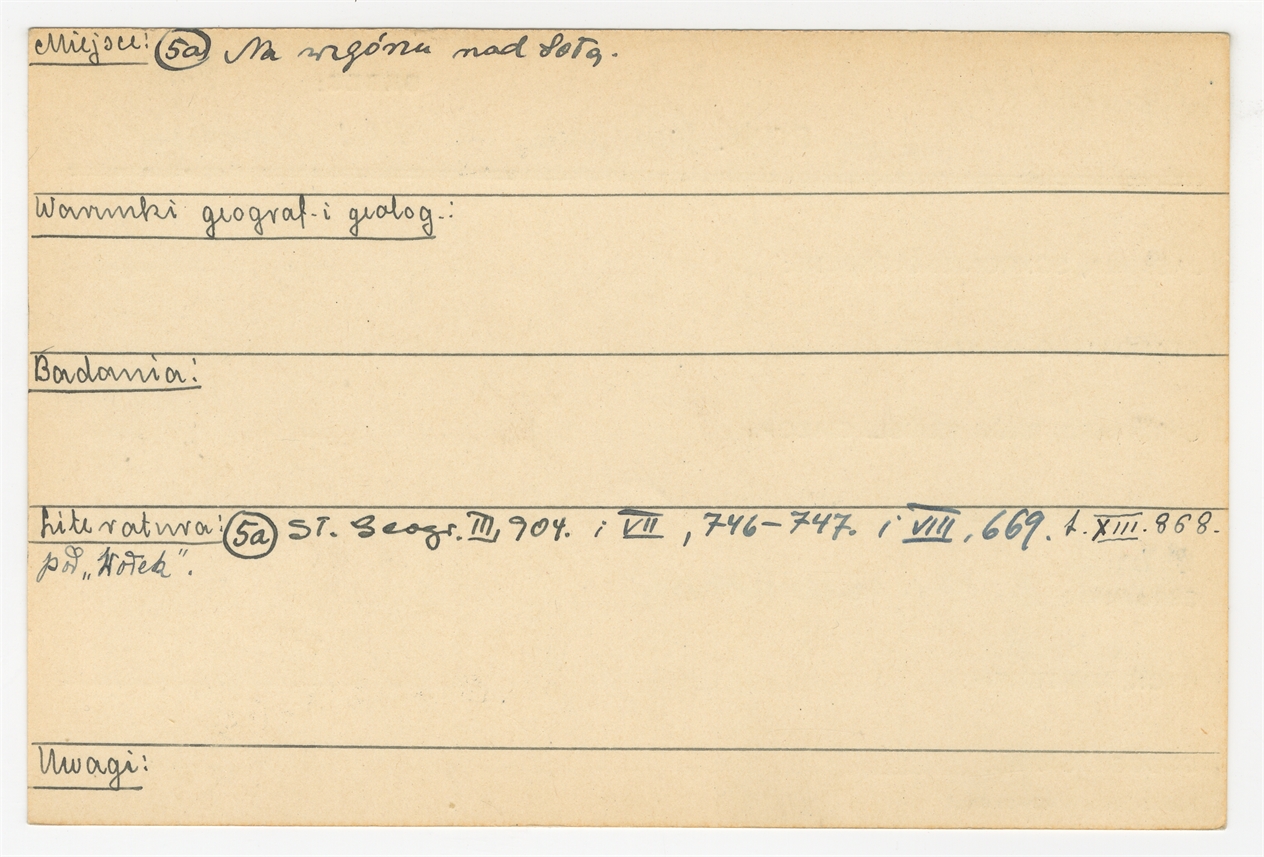 Miejsce: 5a Na wzgórzu nad Sołą.
Warunki geograf. i geolog.:
Badania:
Literatura: 5a Sł. Geogr. III, 904. i VII, 746-747. i VIII, 669. t. XIII. 868.
pod „Wołek".
Uwagi: